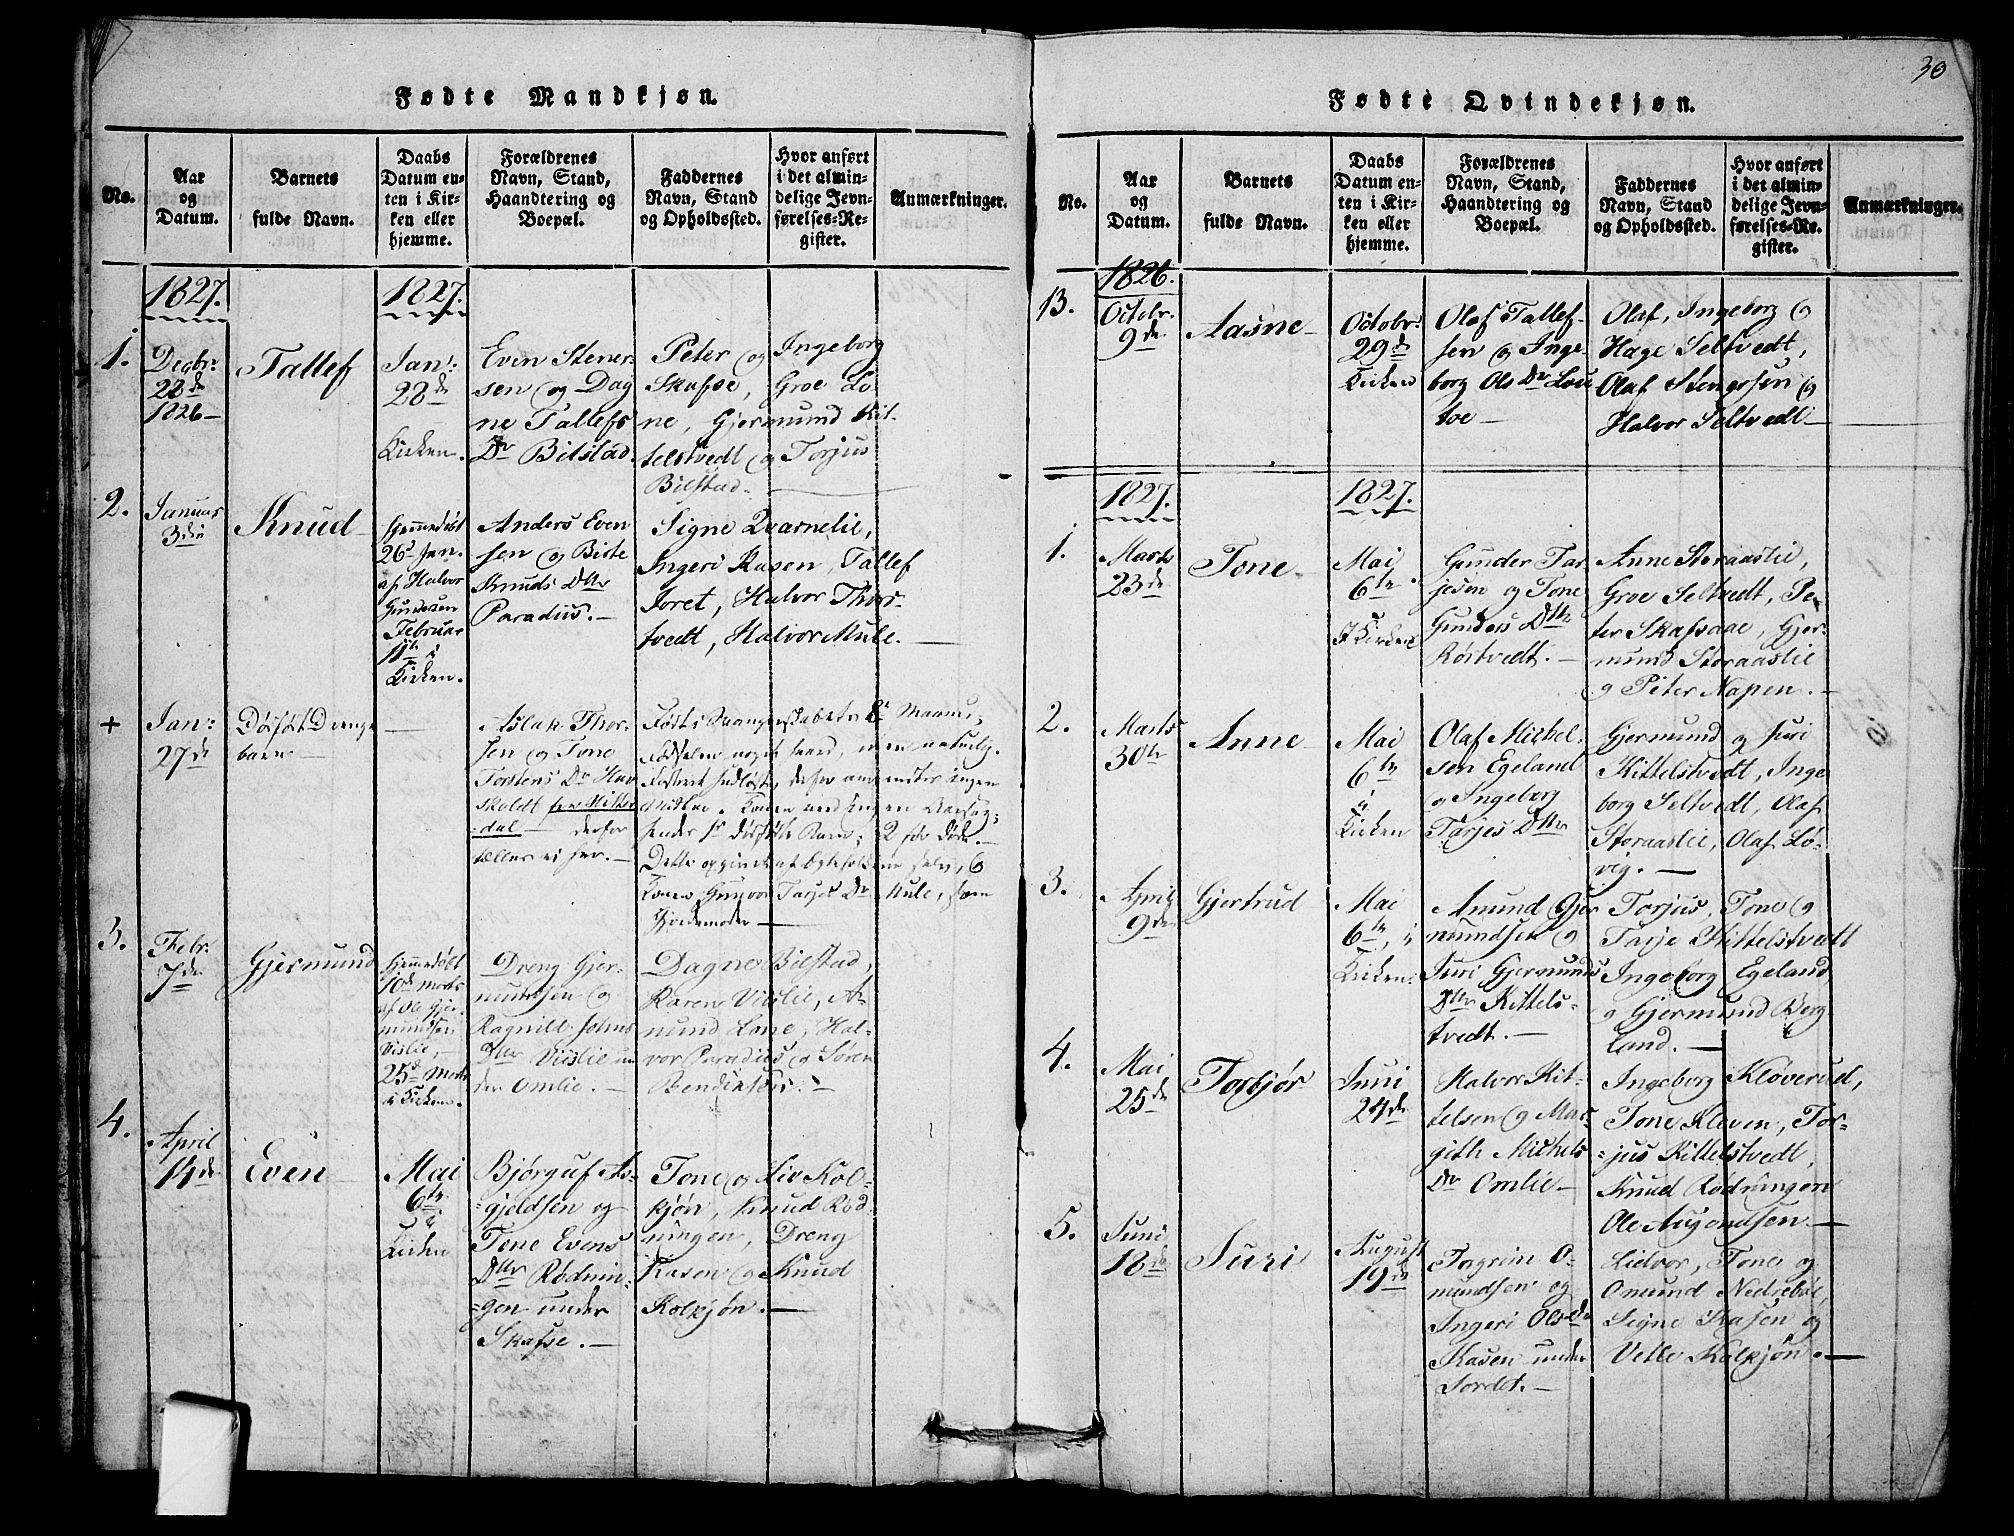 30
Fødte Mandkjøn.
No.
Aar
og
Datum.
Barnets
fulde Navn.
Daabs
Datum en-
ten i Kir-
ken eller
hjemme.
Forældrenes
Navn, Stand,
Haandtering og
Boepæl.
Faddernes
Navn, Stand
og Opholdssted.
Hvor anført
i det almin-
delige Jevn-
førelses-Re-
gister.
Anmærkninger.
1827.
1827.
1.
Decbr.
28de
1826
Tallef
Jan:
28de
Kirken.
Even Stener-
sen og Dag
ne Tallefs
Dr Bilstad.
Peter og Ingeborg
Skafse, Groe Lo-
ne, Gjermund Kit-
telstvedt og Torjus
Bilstad.
2.
Januar
3die
Knud
Hjemmedøbt
26 Jan.
af Halvor
Gundersen
Februar
11te i
Kirken.
Anders Even
sen og Birte
Knuds Dtr
Paradiis.
Signe Qvarnelie,
Ingeri Kasen, Tallef
Joret, Halvor Thors-
tvedt, Halvor Mule.
+
Jan:
27de
Dødfødt Drenge
barn
Aslak Thor-
sen og Tone
Torstens Dr Hav
skoldt fra Hitter
dal derfor
tælles ei her.
3.
Febr.
7de
Gjermund
Hjemmedøbt
10de Marts
af Ole Gjer-
mundsen
Vislie,
25de Marts
i Kirken.
Dreng Gjer-
mundsen og
Ragnild Johns
Dtr Viislie un
der Omlie.
Dagne Bilstad,
Karen Viislie, A-
mund Lone, Hal-
vor Paradiis og Søren
Bendixsen.
4.
April
14de
Even
Mai
6te
i
Kirken
Bjørguf As-
gjeldsen og
Tone Evens
Dtr Rødnin-
gen under
Skafse.
Tone og Liv Kol-
kjøn, Knud Rød-
ningen, Dreng
Kasen og Knud
Kolkjøn.
Fødte Qvindekjøn.
No.
Aar
og
Datum.
Barnets
fulde Navn.
Daabs
Datum en-
ten i Kir-
ken eller
hjemme.
Forældrenes
Navn, Stand,
Haandtering og
Boepæl.
Faddernes
Navn, Stand
og Opholdssted.
Hvor anført
i det almin-
delige Jevn-
førelses-Re-
gister.
Anmærkninger.
1826.
13.
Octobr.
9de
Aasne
Octobr.
29de
Kirken
Olaf Tallef-
sen og Inge-
borg Ols Dr
Olaf, Ingeborg og
Hage Seltvedt,
Olaf og
Halvor Seltvedt
1827.
1827.
1.
Marts
23de
Tone
Mai
6te
I Kirken
Gunder Tar
jesen og Tone
Gunders Dtr
Røstvedt.
Anne Storaaslie,
Groe Seltvedt, Pe-
ter Skafsaae, Gjer-
mund Storaaslie
og Peter Napen.
2.
Marts
30te
Anne
Mai
6te
i
Kirken
Olaf Mickel-
sen Egeland
og Ingeborg
Tarjes Dtr
Gjermund og Juri
Kittelstvedt, Inge
borg Seltvedt, Olaf
Storaaslie, Olaf Lø-
vig.
3.
April
9de
Gjertrud
Mai
6te, i
Kirken.
Anund Gjer
mundsen og
Juri Gjermunds
Dtr Kittels-
tvedt.
Torjus, Tone og
Tarje Kittelstvedt
Ingeborg Egeland,
og Gjermund Berg
land.
4.
Mai
25de
Torbjør
Juni
24de
Halvor Kit-
telsen og Mar-
gith Michels
Dr Omlie
Ingeborg Kløverud,
Tone Kleven, Tor-
jus Kittelstvedt,
Knud Rødningen
Ole Augondsen
5.
Juni
18de
Juri
August
19de
Torgrim O-
mundsen og
Ingeri Ols Dr
Kasen under
Jordet.
Lidvor, Tone og
Omund Nedrebøe,
Signe Kasen og
Vetle Kolkjøn.